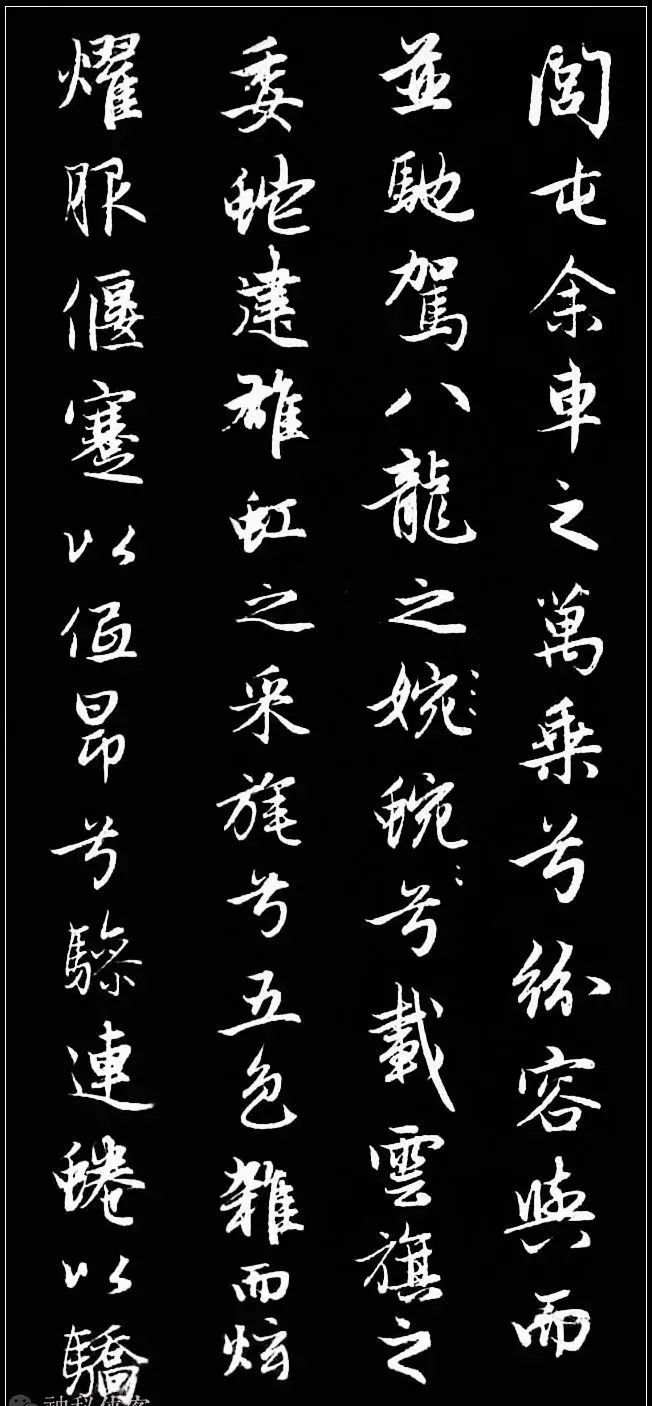 閭屯余車之萬乘兮紛容與而
並馳駕八龍之婉蜿兮載雲旗之
委蛇建雄虹之采旄兮五色雜而炫
燿服偃蹇以低昂兮驂連蜷以驕